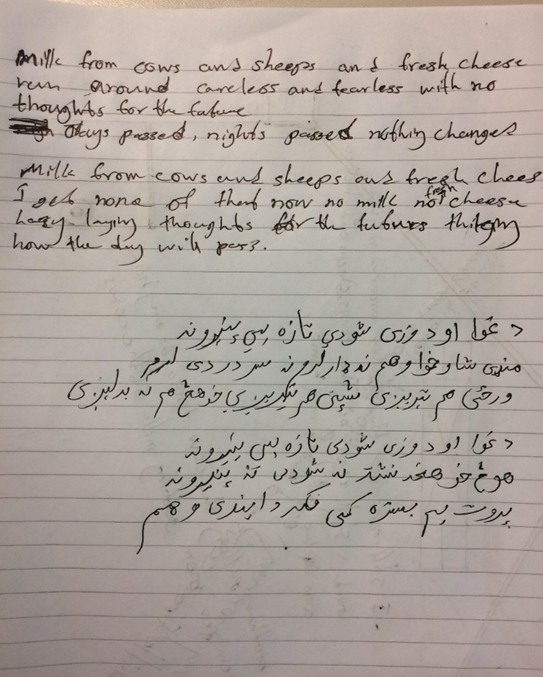 Milk from cows and sheeps and fresh cheese
run around careless and fearless with no
thoughts for the future
days passed, nights passed nothing changes
Milk from cows and sheeps and fresh chees
I get none of that now no milk no fresh cheese
lazy laying thoughts for the future
how the day will pass.
د غوا او د وزی شودې تازه پنیرونه
منډې شا و خوا وهم نه دار لرم نه سر دردی لرم
ورځې هم تیریږی شپې هم تیریږی خو هیڅ هم نه بدلیږی
د غوا او د وزی شودې تازه پنیرونه
نشته نه شودې نه پنیرونه
پروت یم بستره کې فکر د ایندې وهم